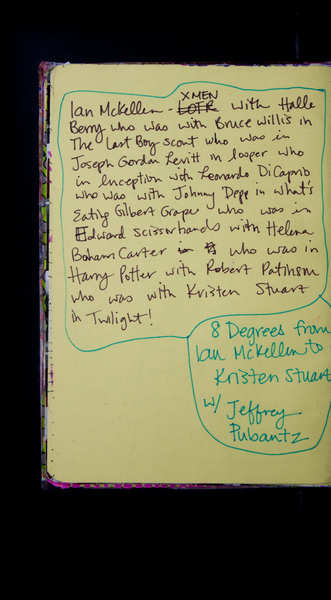 XMEN
Ian McKellen - LOTR with Halle
Berry who was with Bruce Willis in
The Last Boy Scout who was in
Joseph Gordon Levitt in looper who
in Inception with Leonardo DiCaprio
who was with Johnny Depp in what's
Eating Gilbert Grape who was in
Edward Scissorhands with Helena
Boham Carter in who was in
Harry Potter with Robert Patinson
who was with Kristen Stuart
in Twilight!
8 Degrees from
Ian McKellen to
Kristen Stuart
w/ Jeffrey
Pubantz